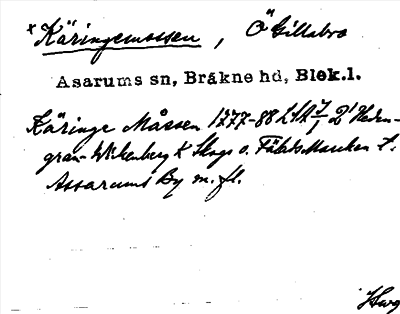 x Käringemossen, Ö Gillabro
Asarums sn, Bräkne hd, Blek.l.
Käringe Måssen 1777-88 LSA 7/1 2' Heden-
gran- Wikenberg K Skogs o. Fälads Marken t.
Assarums By m. fl.